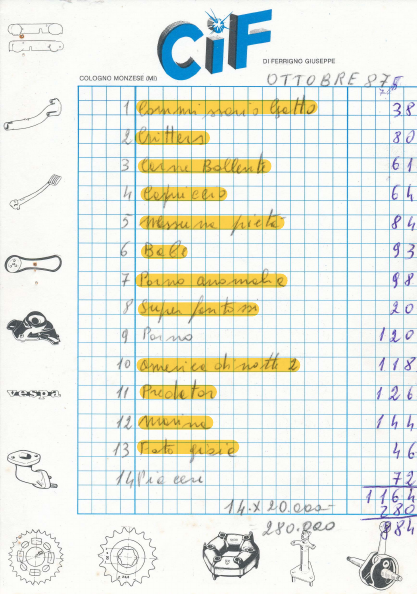 CiF
DI FERRIGNO GIUSEPPE
COLOGNO MONZESE (MI)
OTTOBRE 87
1 Commissario Gatto 38
2 Critters 80
3 Carne Bollente 61
4 Capriccio 64
5 Nessuna pietà 84
6 Bali 93
7 Porno anomalie 98
8 Super fantozzi 20
9 Porno 120
10 America di notte 2 118
11 Predator 126
12 Marina 144
13 Foto gioie 46
14 Piaceri 72
1164
14 x 20.000 280
280.000 884
vespa